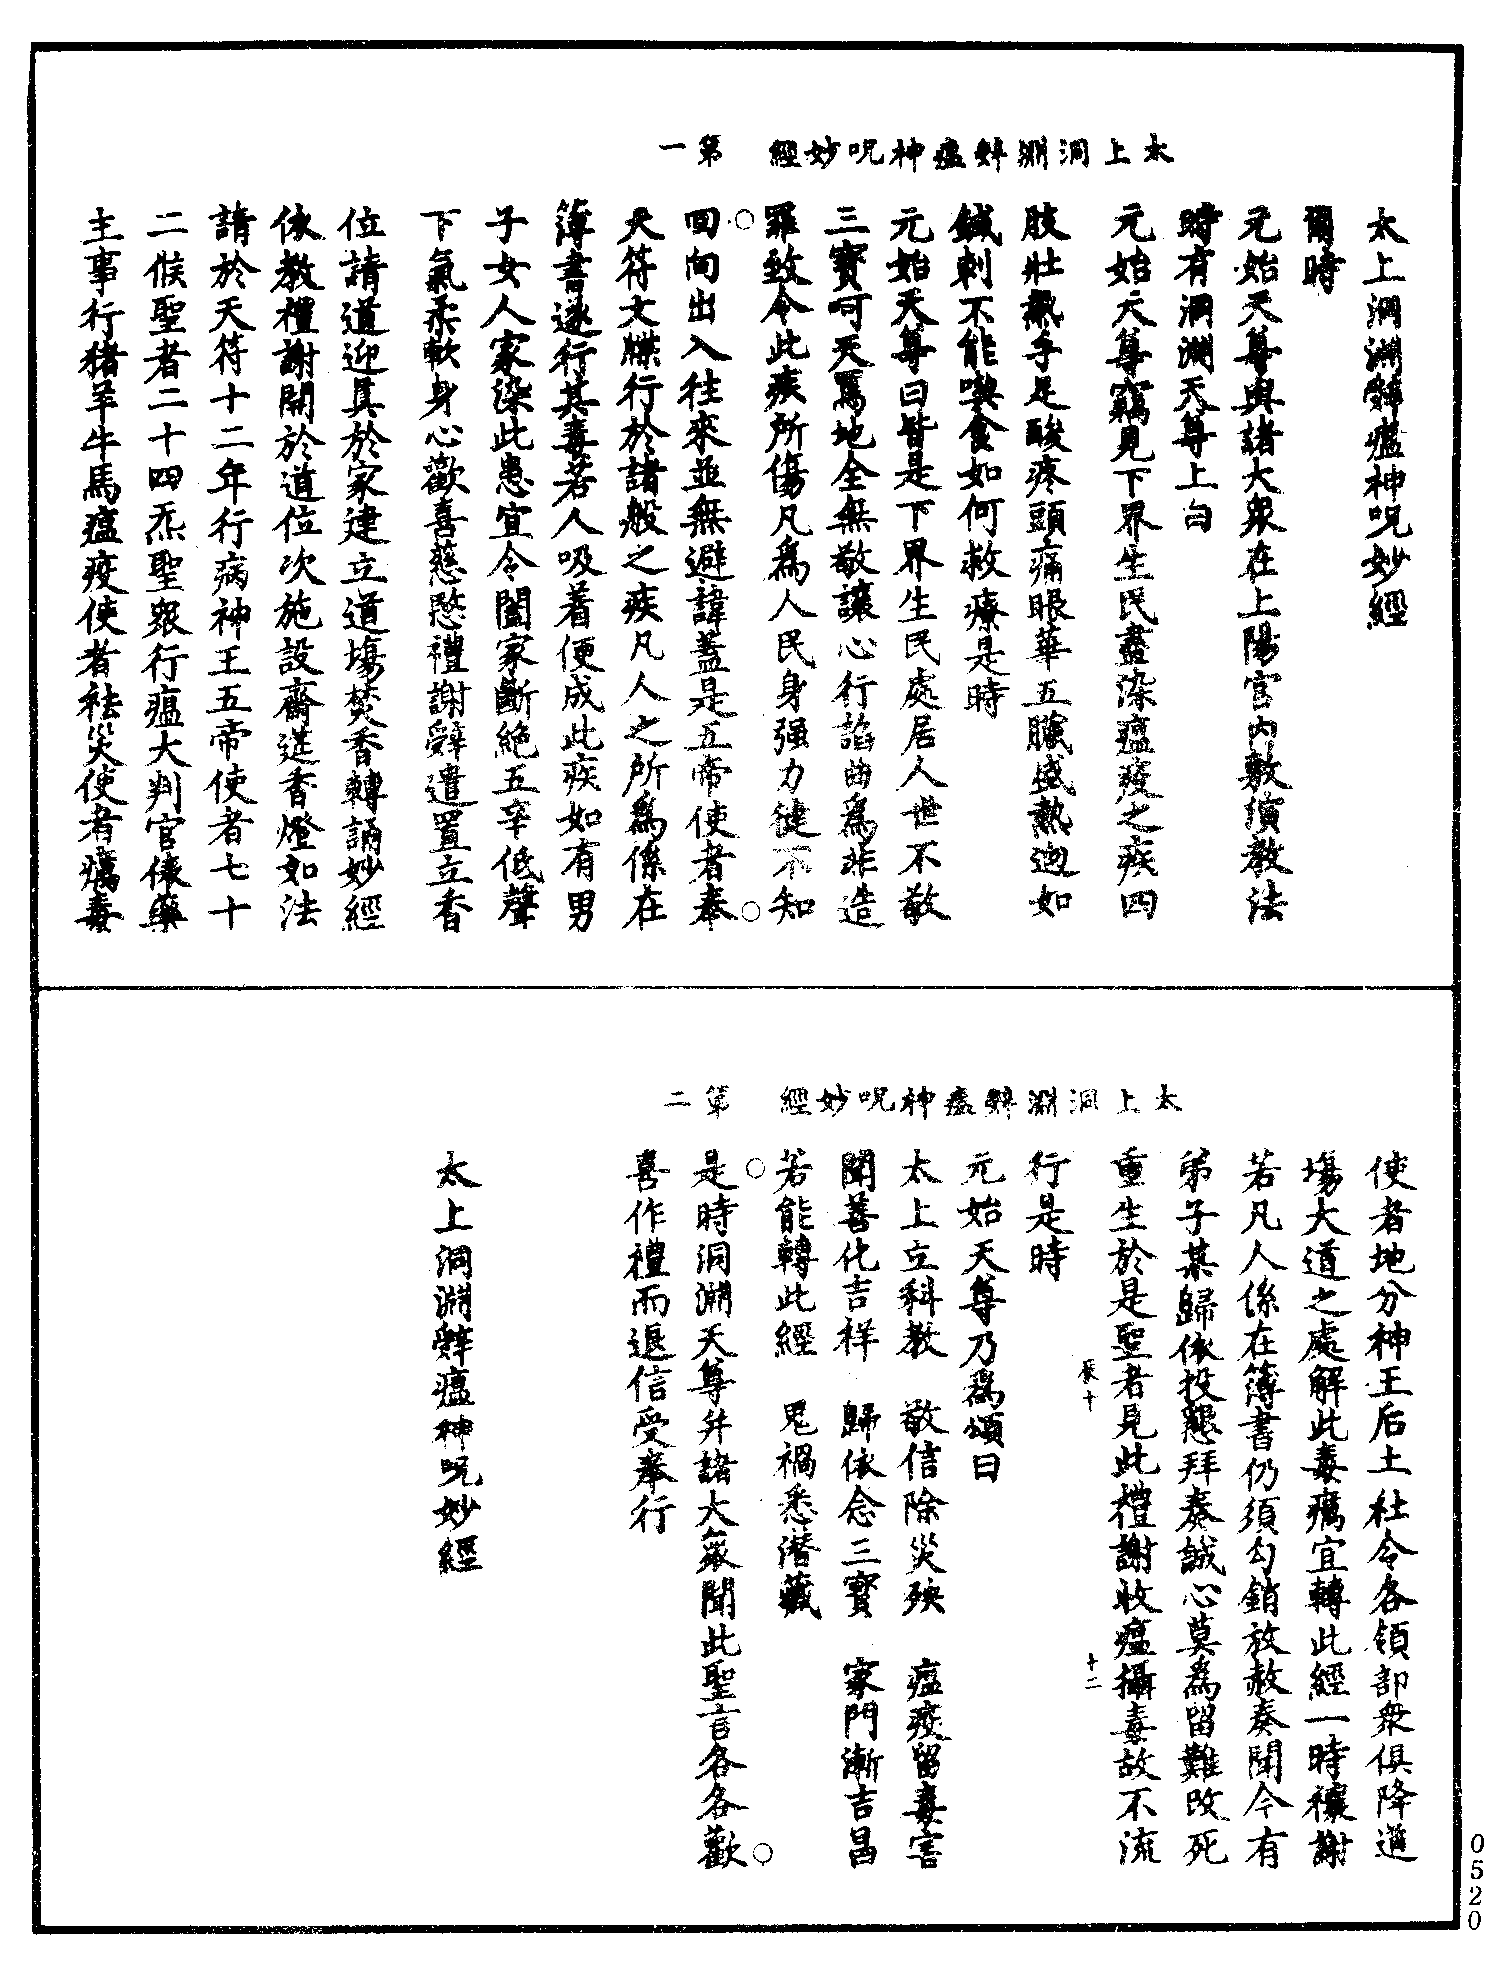 太上洞淵辭瘟神呪妙經　第一
太上洞淵辭瘟神呪妙經
爾時
元始天尊與諸大衆在上陽宮內敷演教法
時有洞淵天尊上白
元始天尊竊見下界生民盡染瘟疫之疾四
肢壯熱手足酸疼頭痛眼華五臟盛熱迦如
鍼刺不能喫食如何救療是時
元始天尊曰皆是下界生民處居人世不敬
三寶呵天罵地全無敬讓心行諂曲爲非造
罪致令此疾所傷凡爲人民身強力健不知
回向出入往來並無避諱蓋是五帝使者奉
天符文牒行於諸般之疾凡人之所爲係在
簿書遂行其毒若人吸着便成此疾如有男
子女人家染此患宜令闔家斷絕五辛低聲
下氣柔軟身心歡喜慈愍禮謝辭遣置立香
位請道迎眞於家建立道塲焚香轉誦妙經
依教禮謝開於道位次施設齋筵香燈如法
請於天符十二年行病神王五帝使者七十
二候聖者二十四炁聖衆行瘟大判官俵藥
主事行猪羊牛馬瘟疫使者袪災使者癘毒
太上洞淵辭瘟神呪妙經　第二
使者地分神王后土社令各領部衆俱降道
塲大道之處解此毒癘宜轉此經一時禳謝
若凡人係在簿書仍須勾銷放赦奏聞今有
弟子某歸依投懇拜奏誠心莫爲留難改死
重生於是聖者見此禮謝收瘟攝毒故不流
辰十
十二
行是時
元始天尊乃爲頌曰
太上立科教　敬信除災殃　瘟疫留毒害
聞善化吉祥　歸依念三寶　家門漸吉昌
若能轉此經　鬼禍悉潛藏
是時洞淵天尊幷諸大衆聞此聖言各各歡
喜作禮而退信受奉行
太上洞淵辭瘟神呪妙經
0520